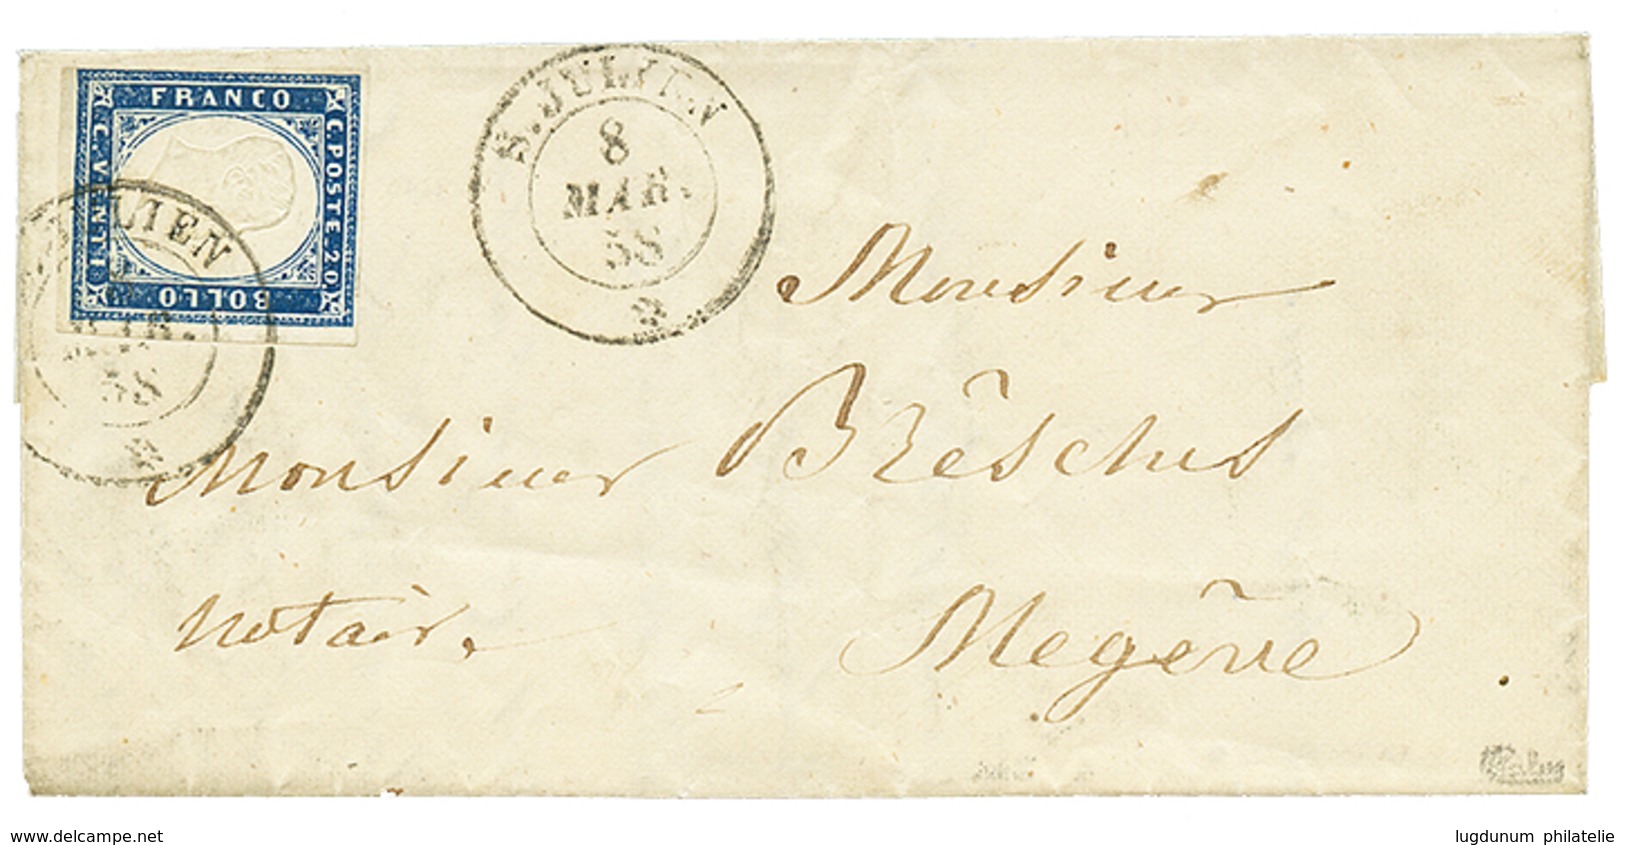 FRANCO
C. POSTE 20
C. VENTI
BOLLO
S. JULIEN
8
MAR.
58
LIEN
MAR.
58
Monsieur
Monsieur
notaire
Megève
www.delcampe.net
lugdunum philatelie